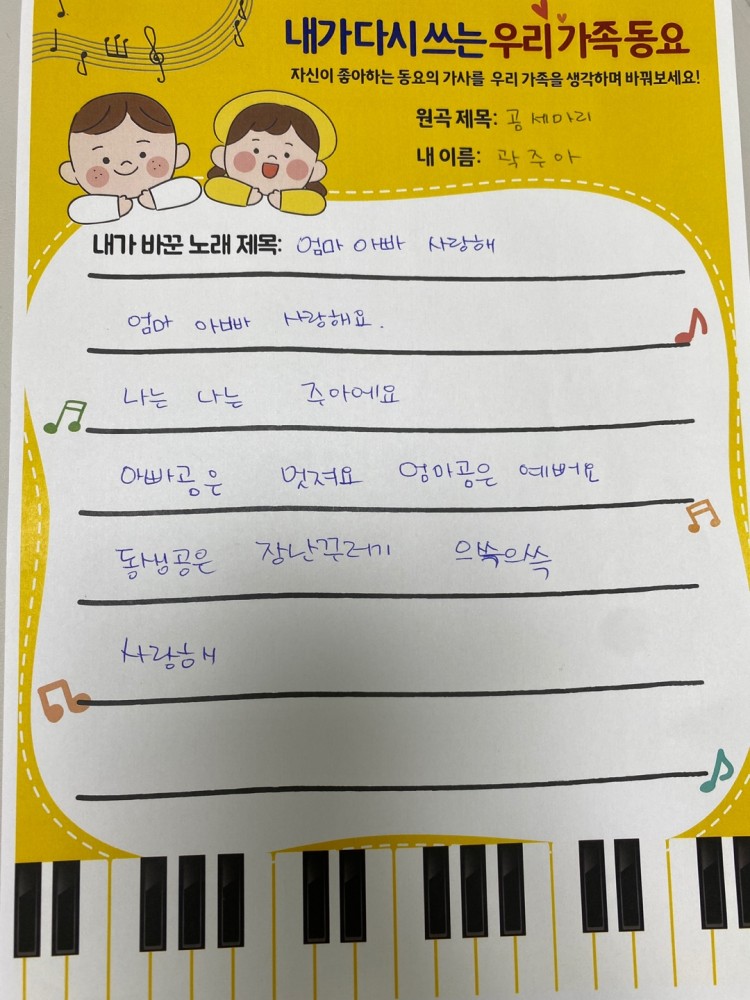 내가 다시 쓰는 우리 가족 동요
자신이 좋아하는 동요의 가사를 우리 가족을 생각하며 바꿔보세요!
원곡 제목: 곰 세마리
내 이름: 곽주아
내가 바꾼 노래 제목: 엄마 아빠 사랑해
엄마 아빠 사랑해요.
나는 나는 주아에요
아빠곰은 멋져요 엄마곰은 예뻐요
동생곰은 장난꾸러기 으쓱으쓱
사랑해